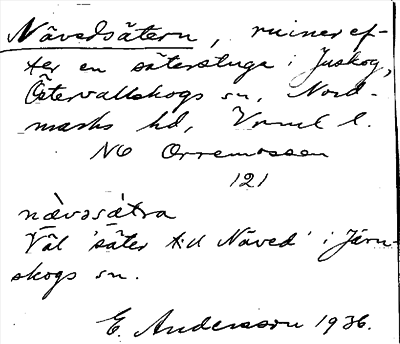 Nävedsätern, ruiner ef-
ter en säterstuga i Juskog,
Östervallskogs sn, Nord-
marks hd, Vrml l.
NO Orremossen
121
nävəsä̀tra
Väl 'säter till Näved' i Järn-
skogs sn.
E. Andersson 1936.